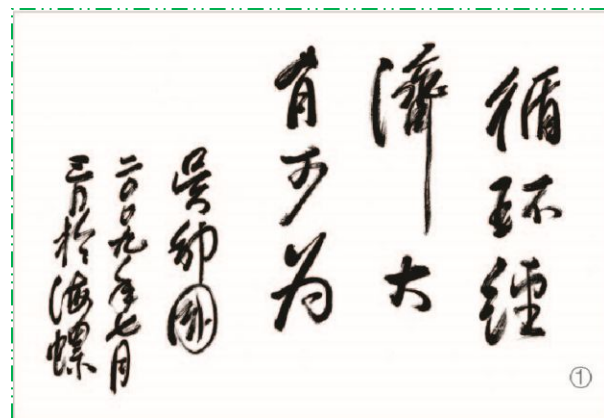 循环经
济大
有可为
吴邦国
二〇〇九年七月
三日于海螺
①